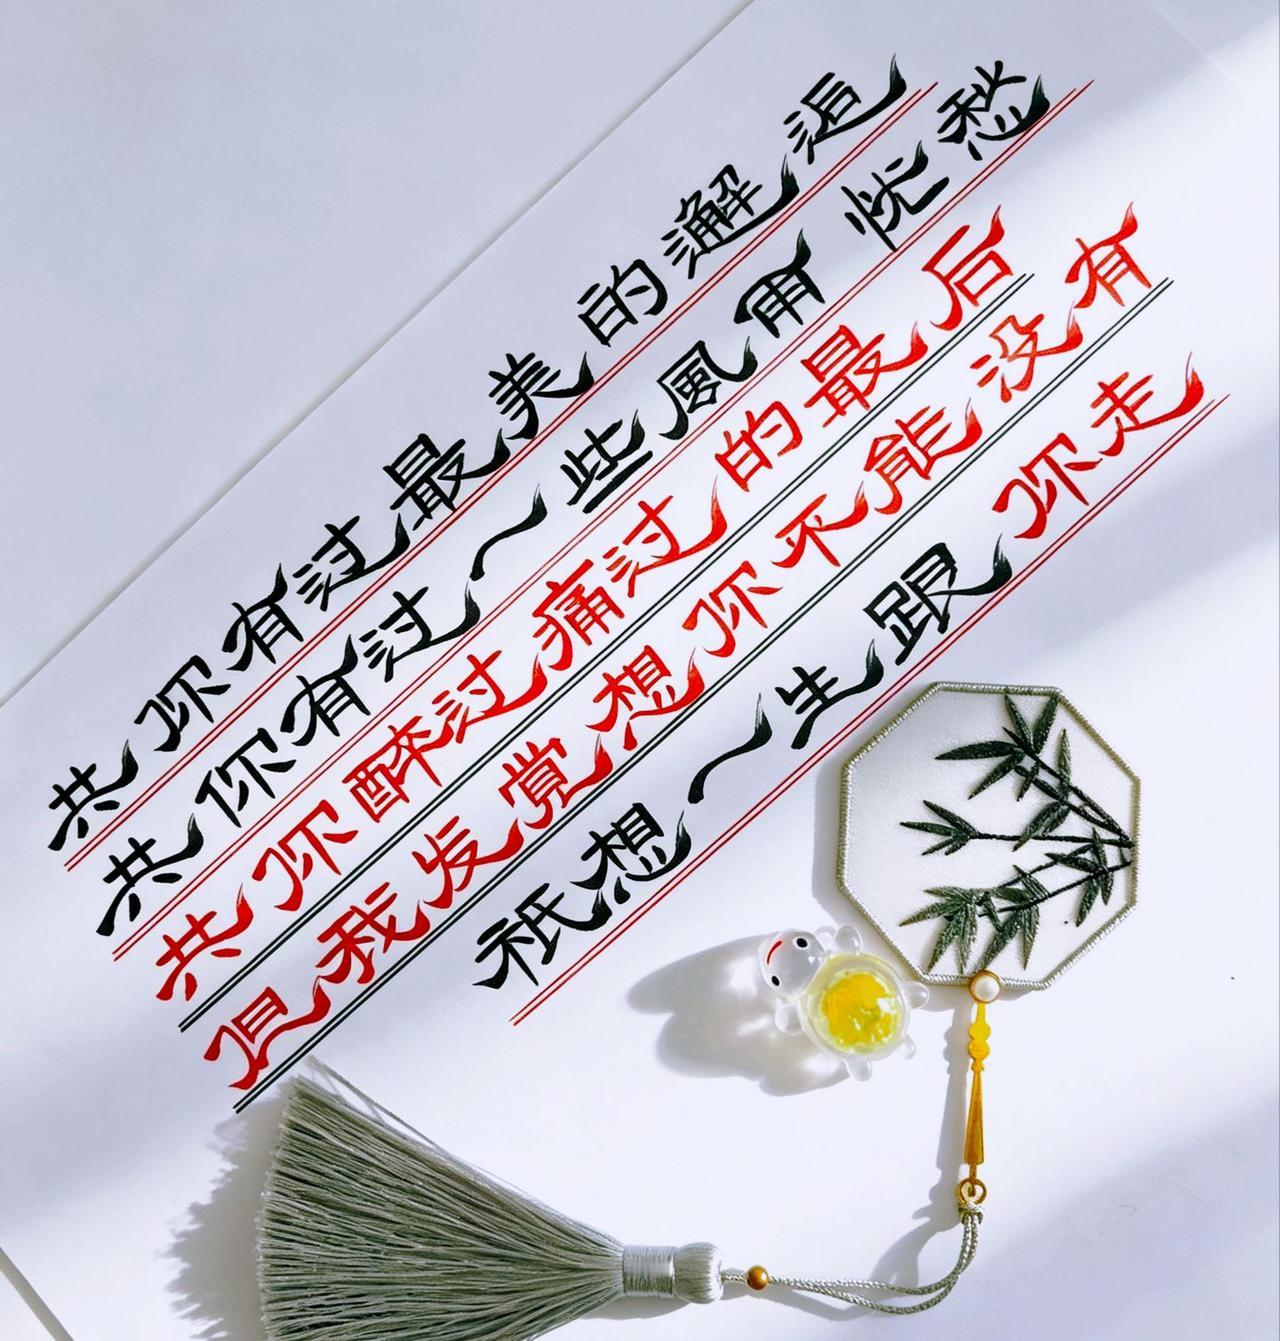 共你有过最美的邂逅
共你有过一些風雨忧愁
共你醉过痛过的最后
但我发覚想你不能没有
祇想一生跟你走